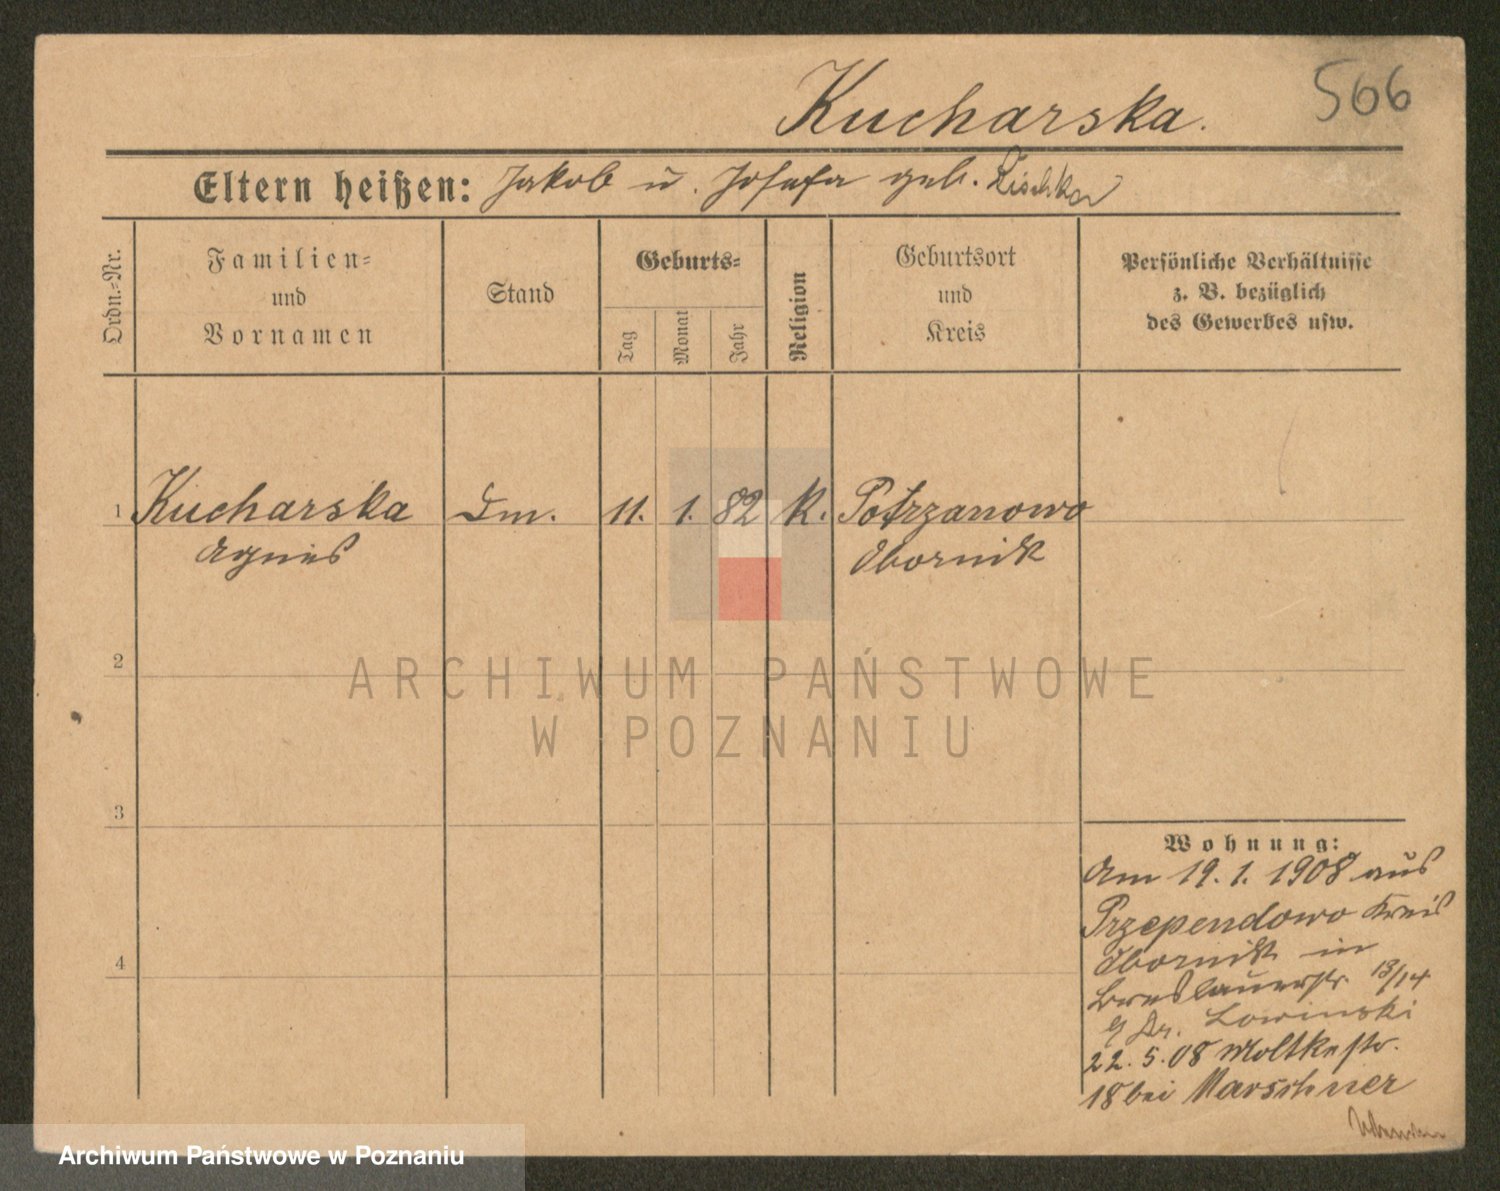 Kucharska.
566
Eltern heißen: Jakob u. Josefa geb.
Ordn.-Nr.
Familien-
und
Vornamen
Stand
Geburts-
Tag
Monat
Jahr
Religion
Geburtsort
und
Kreis
Persönliche Verhältnisse
z. B. bezüglich
des Gewerbes usw.
1 Kucharska Dm. 11. 1. 82 K. Potrzanowo
Agnes Obornik
2
3
4
ARCHIWUM PAŃSTWOWE
W POZNANIU
Wohnung:
Am 19. 1. 1908 aus
Przependowo Kreis
Obornik in
Breslauerstr. 13/14
Dr. Lowinski
22. 5. 08 Moltkestr.
18 bei Marschner
Archiwum Państwowe w Poznaniu